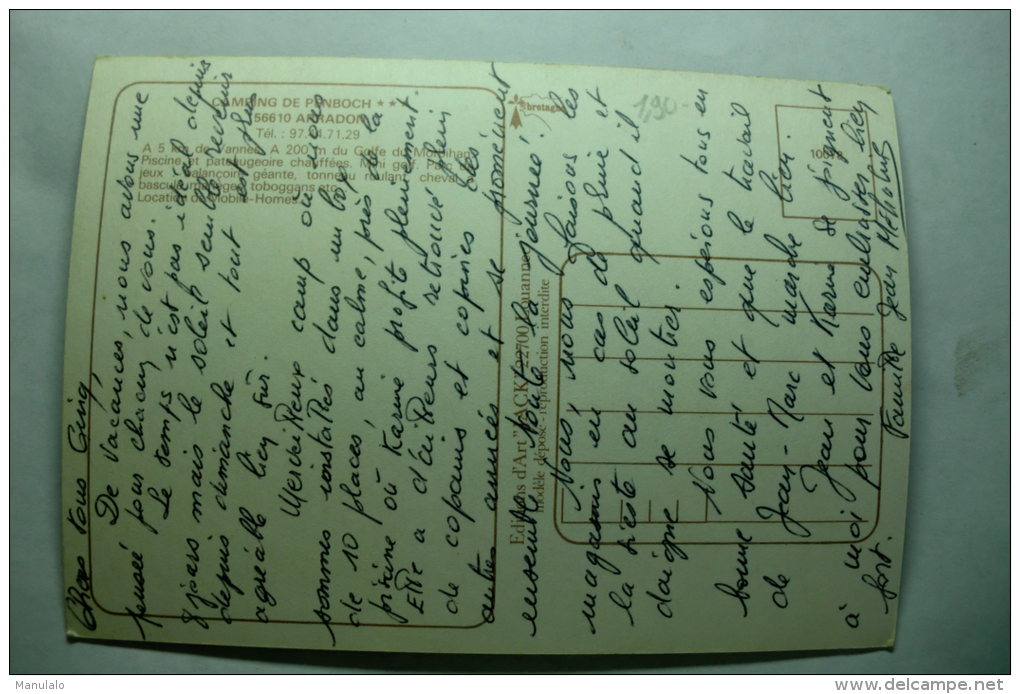 Chers tous Cinq,
De vacances, nous avons une
pensée pous chacun de vous.
Le temps n'est pas idéal depuis
8 jours mais le soleil semble revenir
depuis dimanche et tout est plus
agréable bien sûr.
Merveilleux camp où nous
sommes installés dans un loge
de 10 places, au calme, près de la
piscine où Karine profite pleinement.
Elle a d'ailleurs retrouvé plein
de copains et copines des
autres années et se promènent
ensemble toute la journée!
Nous nous faisons les
magasins en cas de pluie et
la sieste au soleil quand il
daigne se montrer.
Nous vous espérons tous en
bonne santé et que le travail
de Jean-Marc marche bien.
Jean et Karine se joignent
à moi pour vous embrasser bien
fort.
Famille Jean
CAMPING DE PENBOCH ★★
56610 ARRADON
Tél. : 97.44.71.29
A 5 km de Vannes. A 200 m du Golfe du Morbihan
Piscine et pataugeoire chauffées. Mini golf. Parc
jeux : balançoire géante, tonneau roulant, cheval
bascule, manèges, toboggans etc...
Location de Mobile-Homes
bretagne
190-
Editions d'Art "JACK" 22700 Louannec
modèle déposé - reproduction interdite
Manulalo
www.delcampe.net